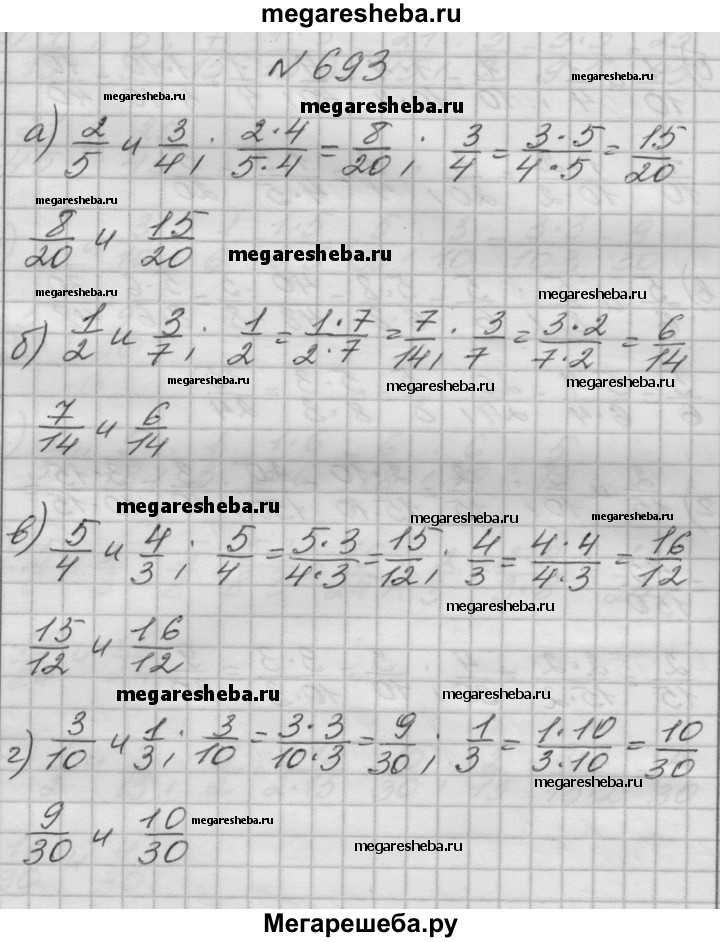 megaresheba.ru
N 693 megaresheba.ru
megaresheba.ru megaresheba.ru
а) 2/5 и 3/4; 2·4/5·4 = 8/20; 3/4 = 3·5/4·5 = 15/20
megaresheba.ru megaresheba.ru
8/20 и 15/20 megaresheba.ru
megaresheba.ru megaresheba.ru
б) 1/2 и 3/7; 1/2 = 1·7/2·7 = 7/14; 3/7 = 3·2/7·2 = 6/14
megaresheba.ru megaresheba.ru megaresheba.ru
7/14 и 6/14
megaresheba.ru megaresheba.ru megaresheba.ru
в) 5/4 и 4/3; 5/4 = 5·3/4·3 = 15/12; 4/3 = 4·4/4·3 = 16/12
megaresheba.ru
15/12 и 16/12
megaresheba.ru megaresheba.ru
г) 3/10 и 1/3; 3/10 = 3·3/10·3 = 9/30; 1/3 = 1·10/3·10 = 10/30
megaresheba.ru
9/30 и 10/30 megaresheba.ru
megaresheba.ru
Мегарешеба.ру